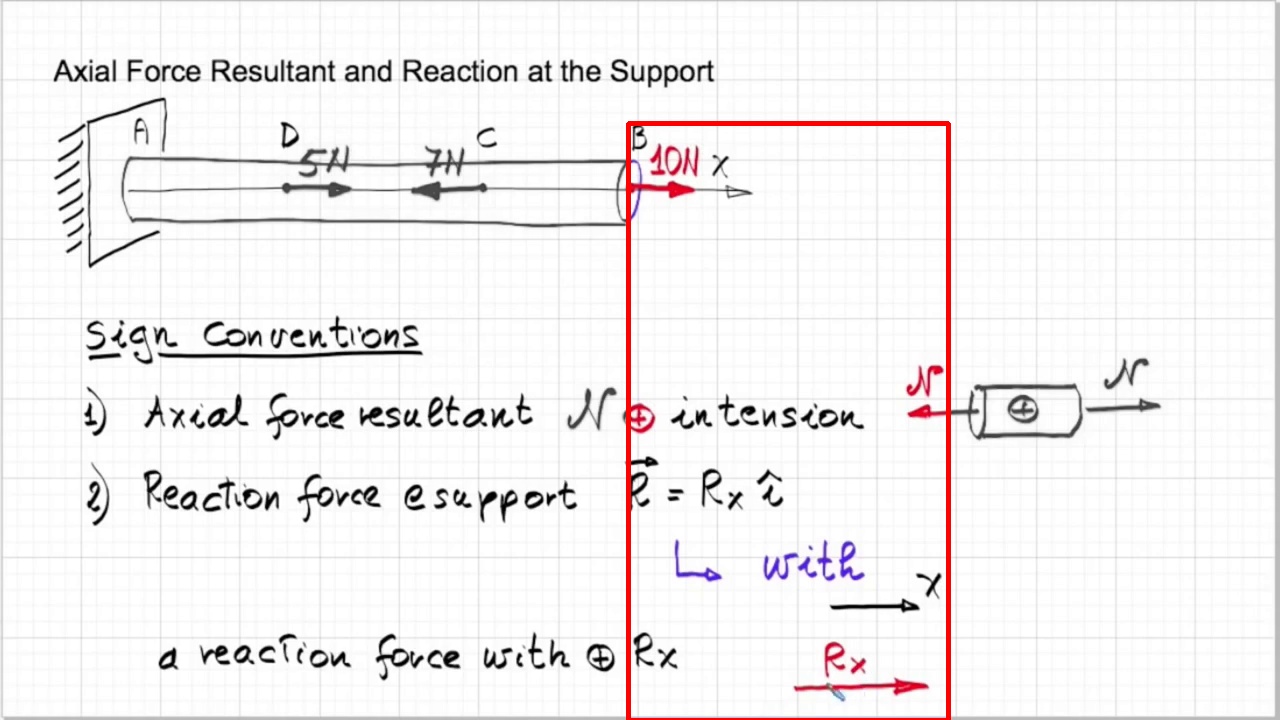 Axial Force Resultant and Reaction at the Support
A D 5N 7N C B 10N x
Sign Conventions
1) Axial force resultant N ⊕ in tension N ⊕ N
2) Reaction force @ support R⃗ = Rx î
↳ with x
a reaction force with ⊕ Rx Rx